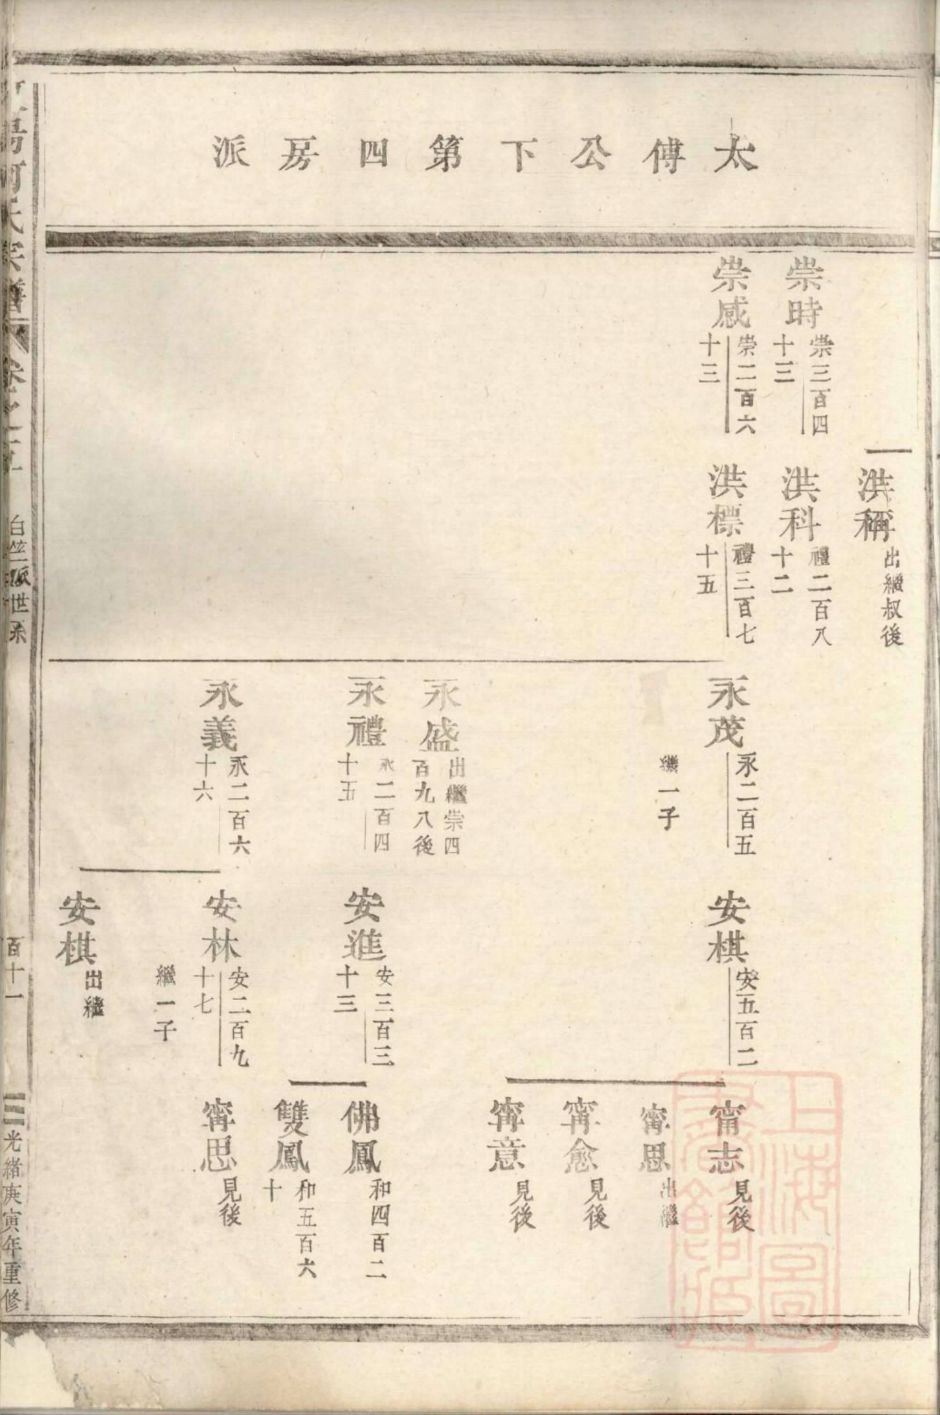 太傅公下第四房派
崇時
崇三百四
十三
崇感
崇二百六
十三
洪稱
出繼叔後
洪科
禮二百八
十二
洪標
禮三百七
十五
永茂
永二百五
繼一子
永盛
出繼崇四
百九八後
永禮
永二百四
十五
永義
永二百六
十六
安棋
安五百二
安進
安三百三
十三
安林
安二百九
十七
繼一子
安棋
出繼
甯志
見後
甯思
出繼
甯愈
見後
甯意
見後
佛鳳
和四百二
雙鳳
和五百六
十
甯思
見後
何氏宗譜
卷之五
白竺派世系
百十一
光緒庚寅年重修
上海圖書館藏